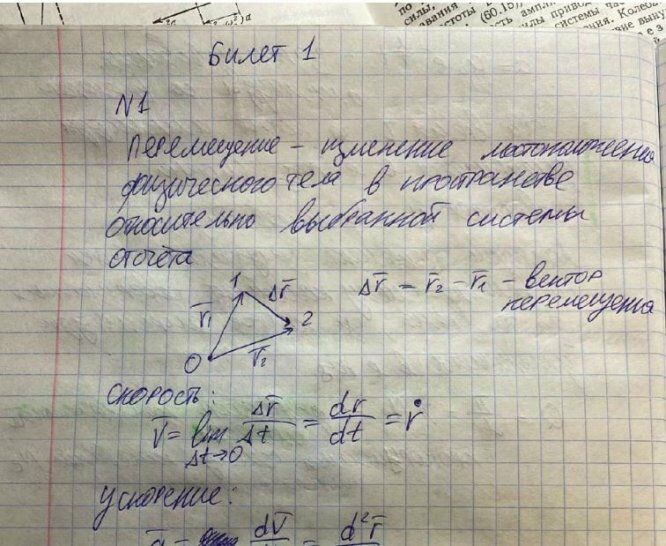 по
силы,
(60.15),
Билет 1
N1
Перемещение – изменение местоположения
физического тела в пространстве
относительно выбранной системы
отсчёта
1
Δr̅
r̅₁
2
0
r̅₂
Δr̅ = r̅₂ – r̅₁ – вектор
перемещения
Скорость:
V̅ = lim Δr̅/Δt = dr/dt = ṙ
Δt→0
Ускорение:
a̅ = dV̅/ = d²r̅/